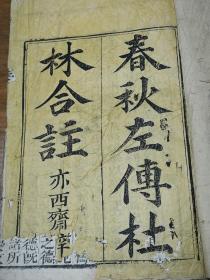 春秋左傳杜
林合註
亦西齋